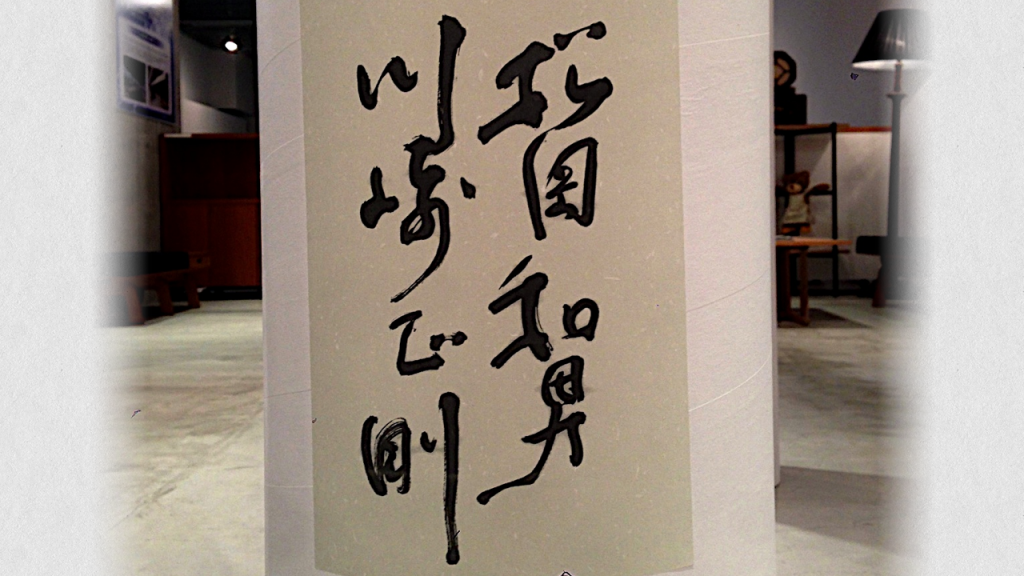 松岡和男
川崎正剛